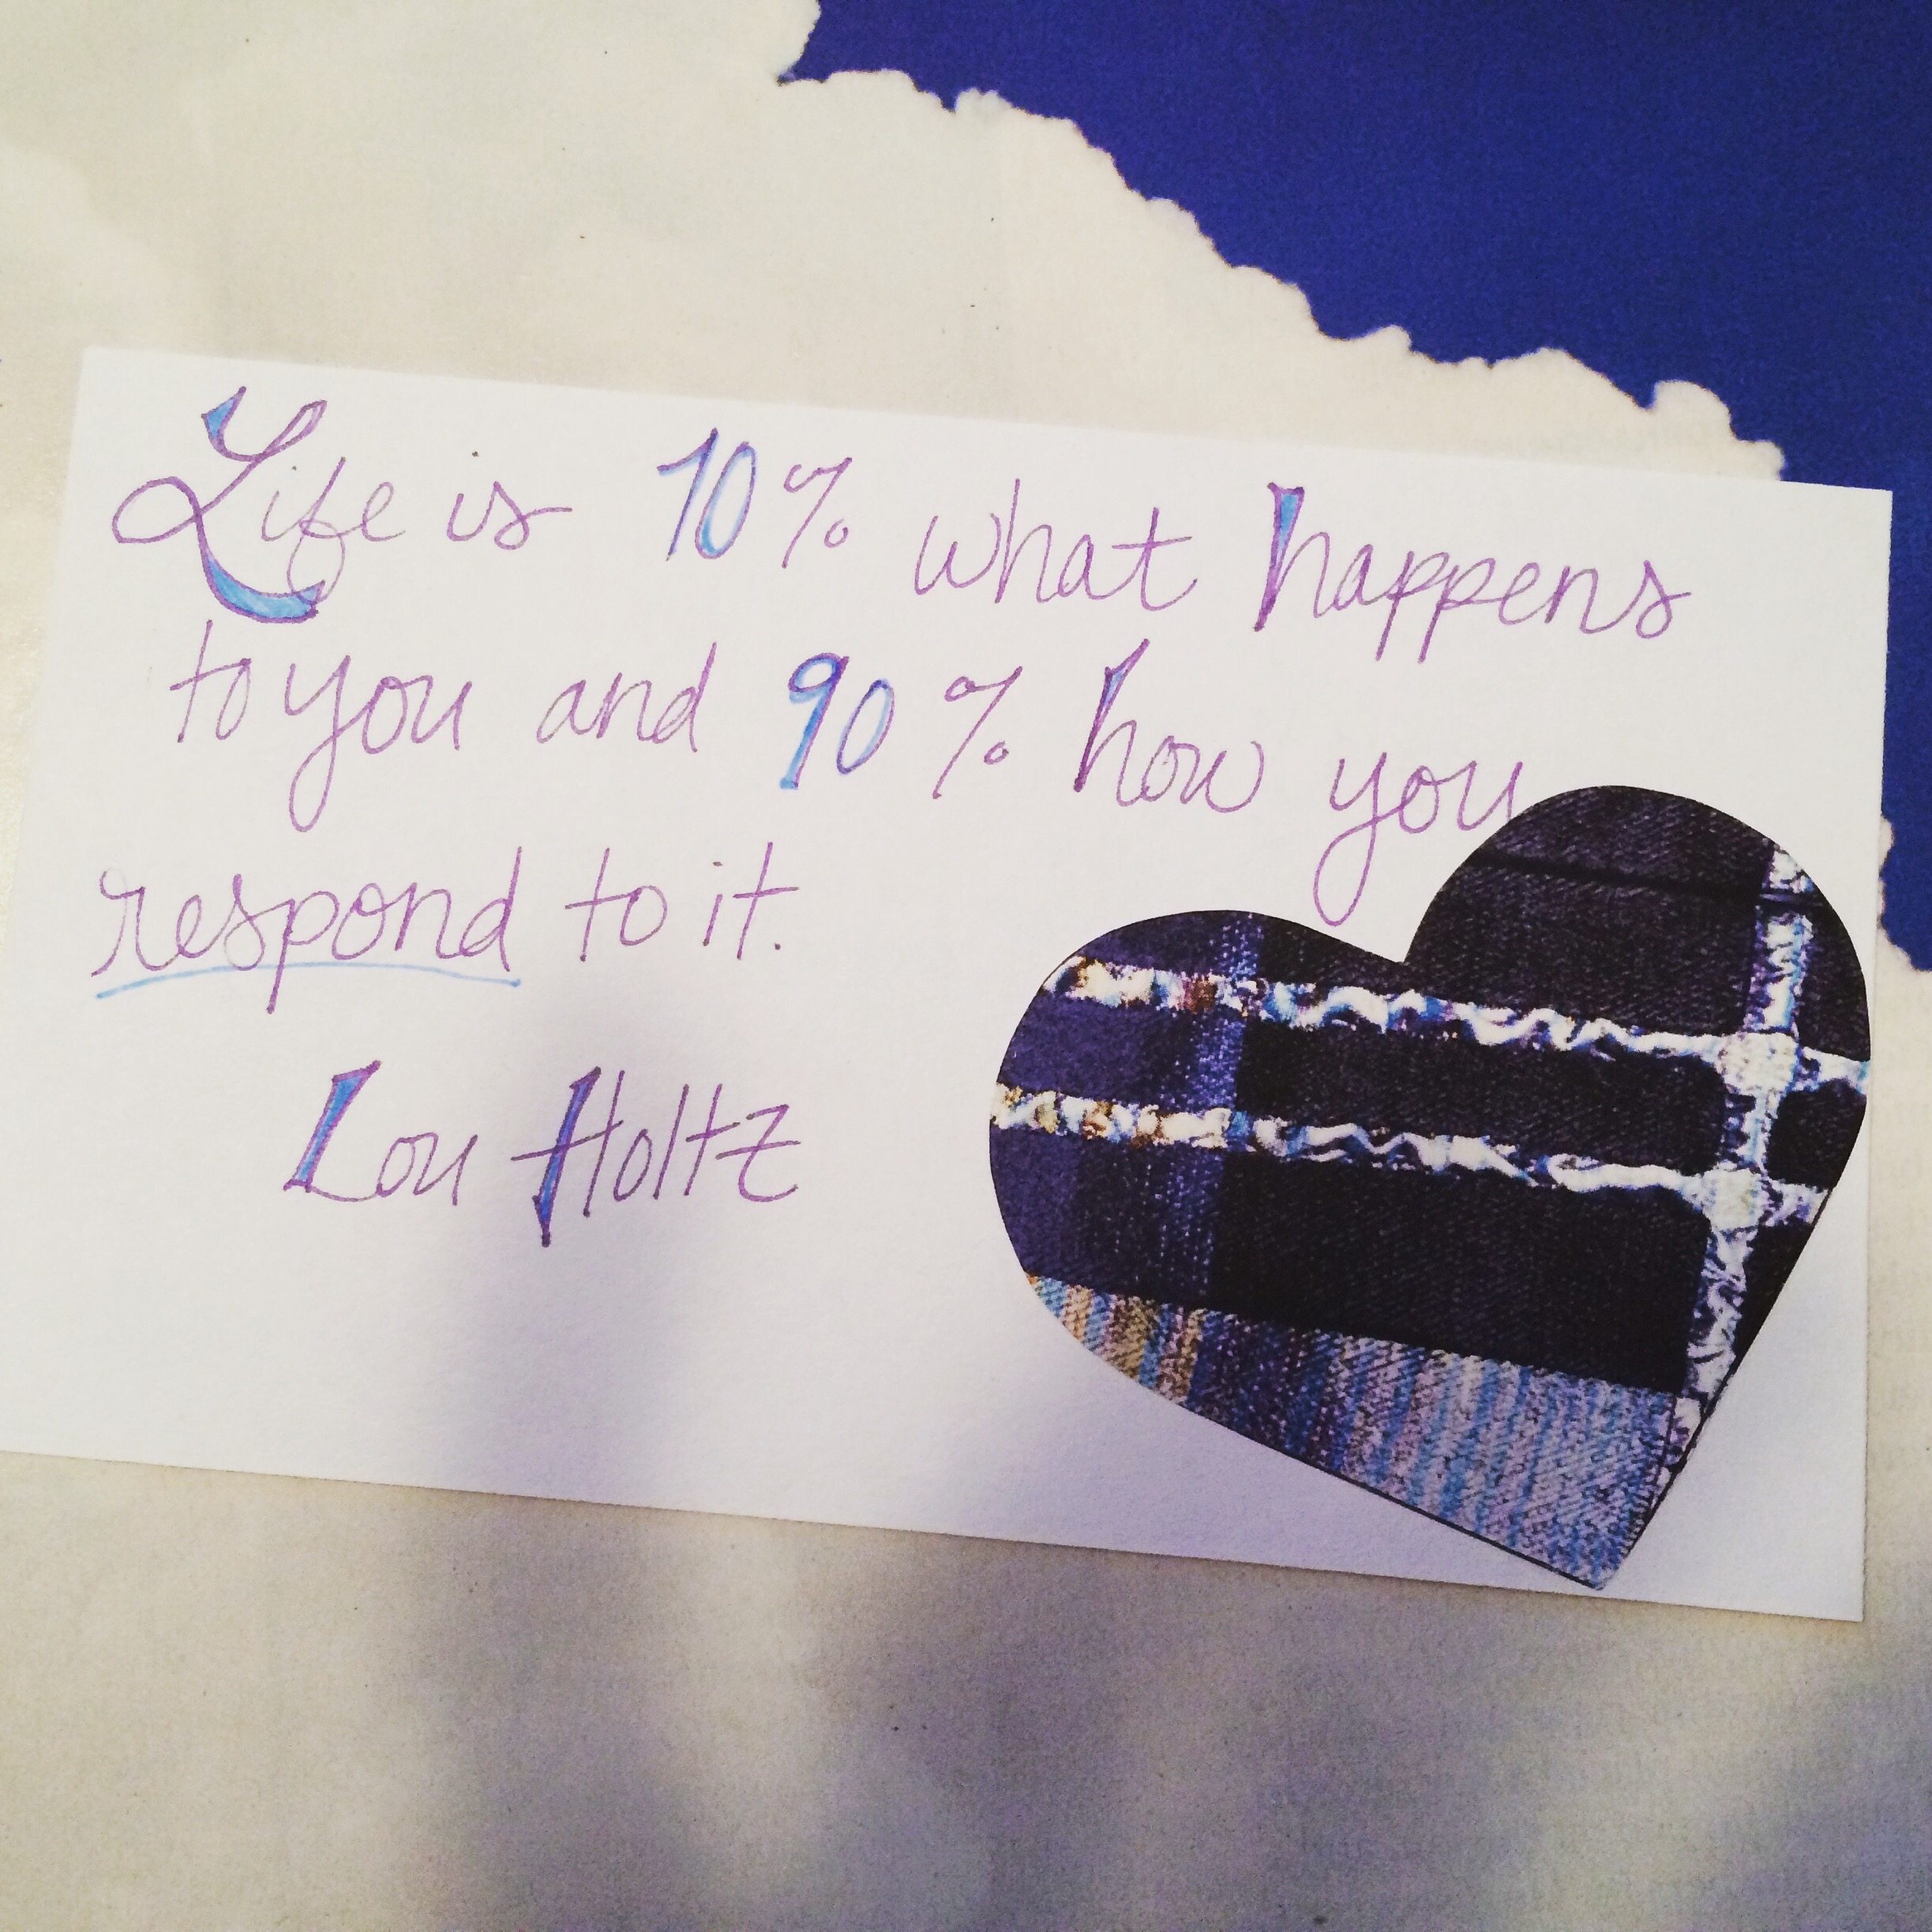 Life is 10% what happens
to you and 90% how you
respond to it.
Lou Holtz